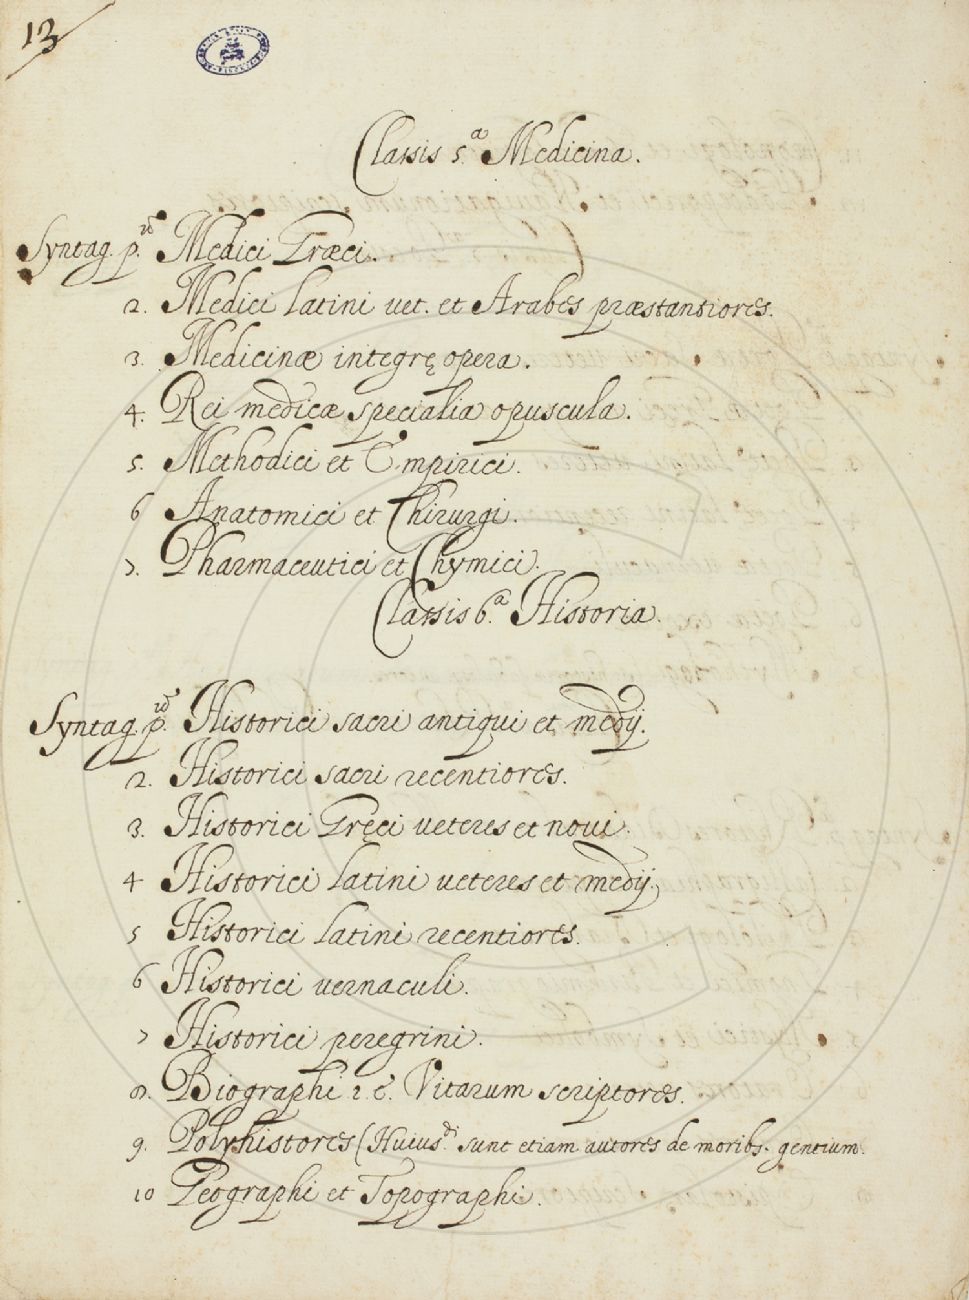 13
Classis 5.ª Medicina.
Syntag. p.ᵘᵐ Medici Græci.
2. Medici latini vet. et Arabes præstantiores.
3. Medicinæ integrę opera.
4. Rei medicæ specialia opuscula.
5. Methodici et Empirici.
6 Anatomici et Chirurgi.
7. Pharmaceutici et Chymici.
Classis 6.ª Historia.
Syntag. p.ᵘᵐ Historici sacri antiqui et medij.
2. Historici sacri recentiores.
3. Historici Gręci veteres et novi.
4 Historici latini veteres et medij.
5 Historici latini recentiores.
6 Historici vernaculi.
7 Historici peregrini.
8. Biographi i. e. Vitarum scriptores.
9. Polyhistores (Huiusᵈⁱ sunt etiam autores de moribs. gentium.
10 Geographi et Topographi.